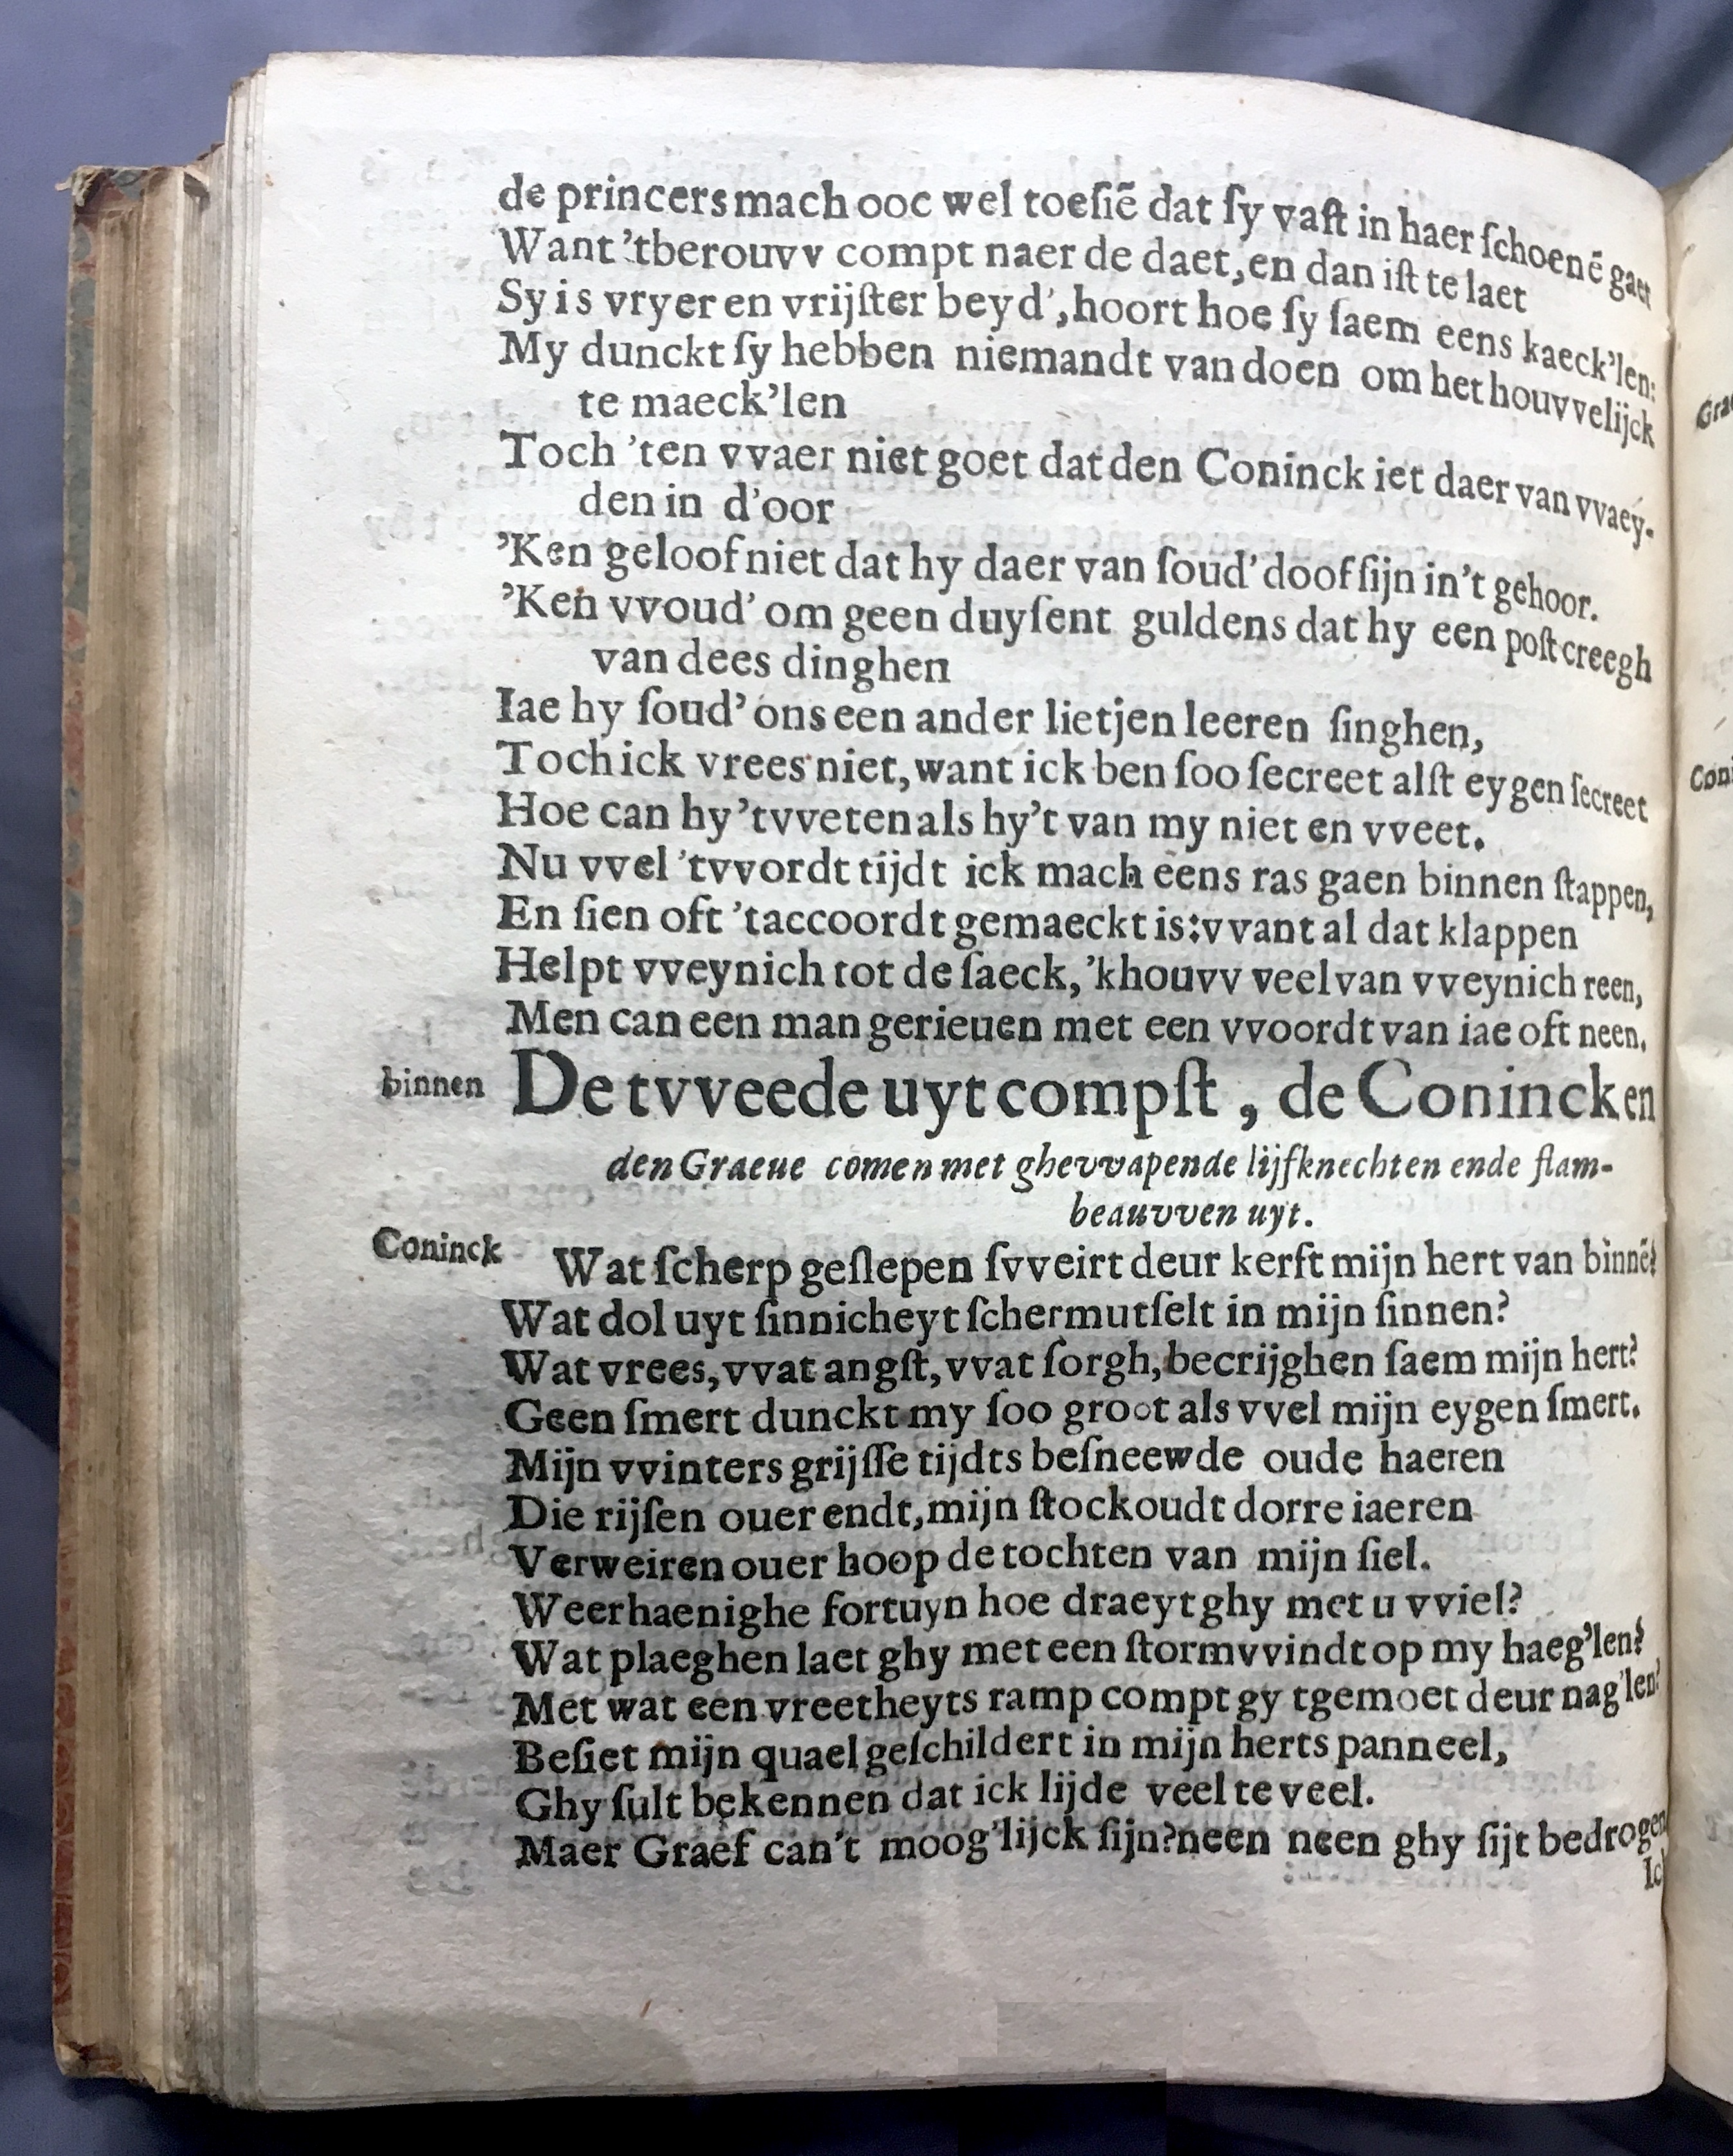 de princers mach ooc wel toeſiẽ dat ſy vaſt in haer ſchoenẽ gaet
Want 'tberouvv compt naer de daet, en dan iſt te laet
Sy is vryer en vrijſter beyd', hoort hoe ſy ſaem eens kaeck'len:
My dunckt ſy hebben niemandt van doen om het houvvelijck
te maeck'len
Toch 'ten vvaer niet goet dat den Coninck iet daer van vvaey-
den in d'oor
'Ken geloof niet dat hy daer van ſoud' doof ſijn in't gehoor.
'Ken vvoud' om geen duyſent guldens dat hy een poſt creegh
van dees dinghen
Iae hy ſoud' ons een ander lietjen leeren ſinghen,
Toch ick vrees niet, want ick ben ſoo ſecreet alſt eygen ſecreet
Hoe can hy 'tvveten als hy't van my niet en vveet.
Nu vvel 'tvvordt tijdt ick mach eens ras gaen binnen ſtappen,
En ſien oft 'taccoordt gemaeckt is: vvant al dat klappen
Helpt vveynich tot de ſaeck, 'khouvv veel van vveynich reen,
Men can een man gerieuen met een vvoordt van iae oft neen.
binnen De tvveede uyt compſt, de Coninck en
den Graeue comen met ghevvapende lijfknechten ende flam-
beauvven uyt.
Coninck Wat ſcherp geſlepen ſvveirt deur kerft mijn hert van binnẽ?
Wat dol uyt ſinnicheyt ſchermutſelt in mijn ſinnen?
Wat vrees, vvat angſt, vvat ſorgh, becrijghen ſaem mijn hert?
Geen ſmert dunckt my ſoo groot als vvel mijn eygen ſmert.
Mijn vvinters grijſſe tijdts beſneewde oude haeren
Die rijſen ouer endt, mijn ſtockoudt dorre iaeren
Verweiren ouer hoop de tochten van mijn ſiel.
Weerhaenighe fortuyn hoe draeyt ghy met u vviel?
Wat plaeghen laet ghy met een ſtormvvindt op my haeg'len?
Met wat een vreetheyts ramp compt gy tgemoet deur nag'len?
Beſiet mijn quael geſchildert in mijn herts panneel,
Ghy ſult bekennen dat ick lijde veel te veel.
Maer Graef can't moog'lijck ſijn? neen neen ghy ſijt bedrogen